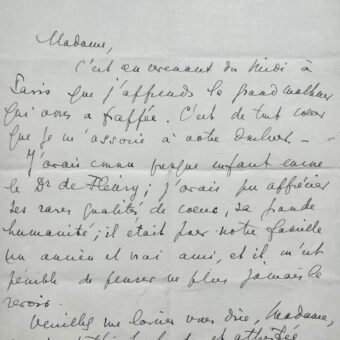 Madame,
C'est en revenant du Midi à
Paris que j'apprends le grand malheur
qui vous a frappée. C'est de tout coeur
que je m'associe à votre douleur.
J'avais connu presque enfant encore
le Dr de Fleury ; j'avais pu apprécier
ses rares qualités de coeur, sa grande
humanité ; il était pour notre famille
un ancien et vrai ami, et il m'est
pénible de penser ne plus jamais le
revoir.
Veuillez me laisser vous dire, Madame,
et attristée